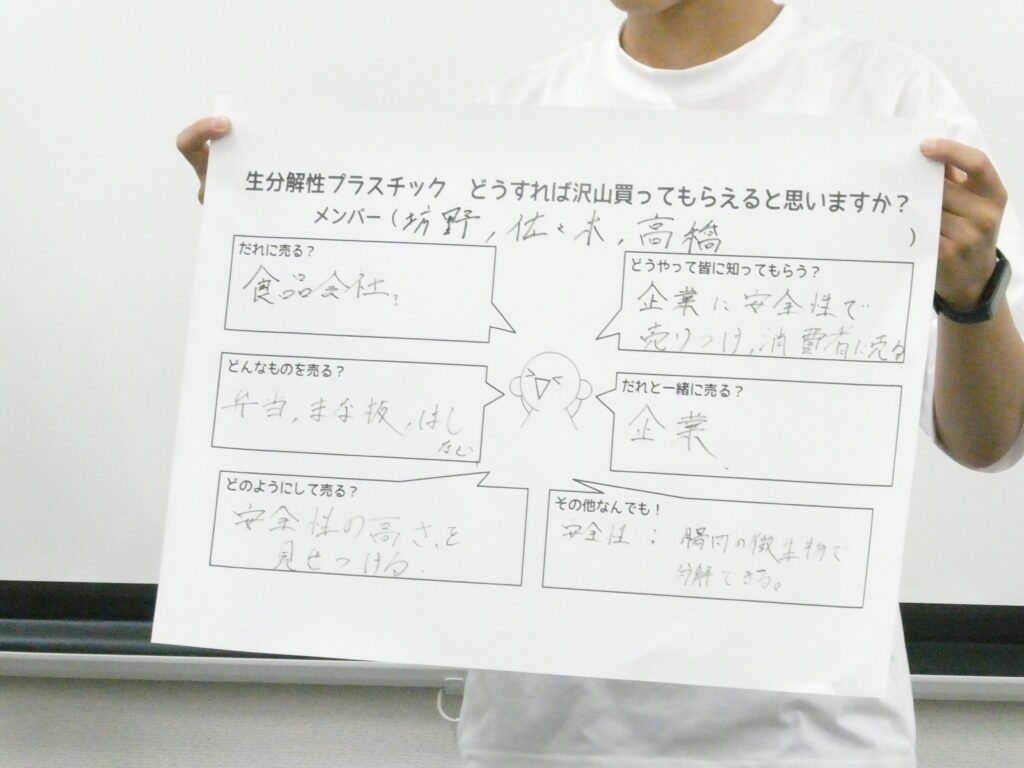 生分解性プラスチック どうすれば沢山買ってもらえると思いますか？
メンバー（坊野，佐々木，高橋 ）
だれに売る？
食品会社。
どんなものを売る？
弁当，まな板，はし
など
どのようにして売る？
安全性の高さを
見せつける．
どうやって皆に知ってもらう？
企業に安全性で
売りつけ，消費者に売る
だれと一緒に売る？
企業．
その他なんでも！
安全性：腸内の微生物で
分解できる。